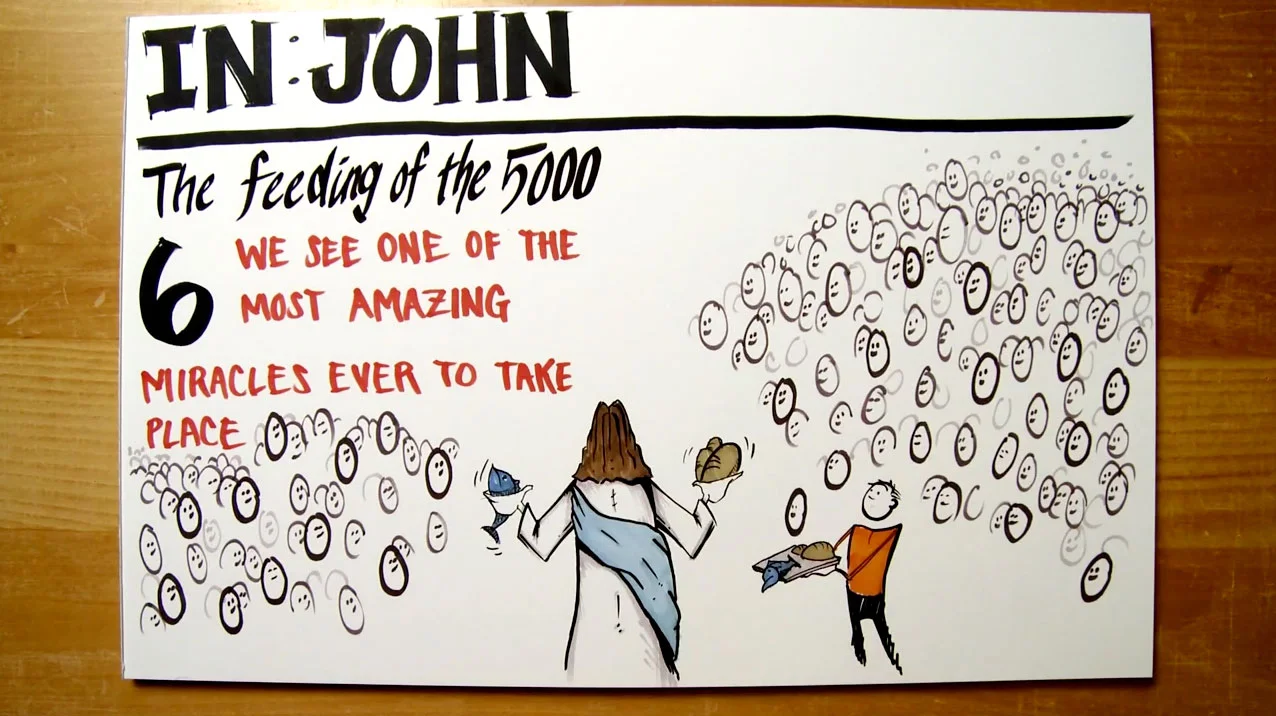 IN: JOHN
The feeding of the 5000
6 WE SEE ONE OF THE
MOST AMAZING
MIRACLES EVER TO TAKE
PLACE